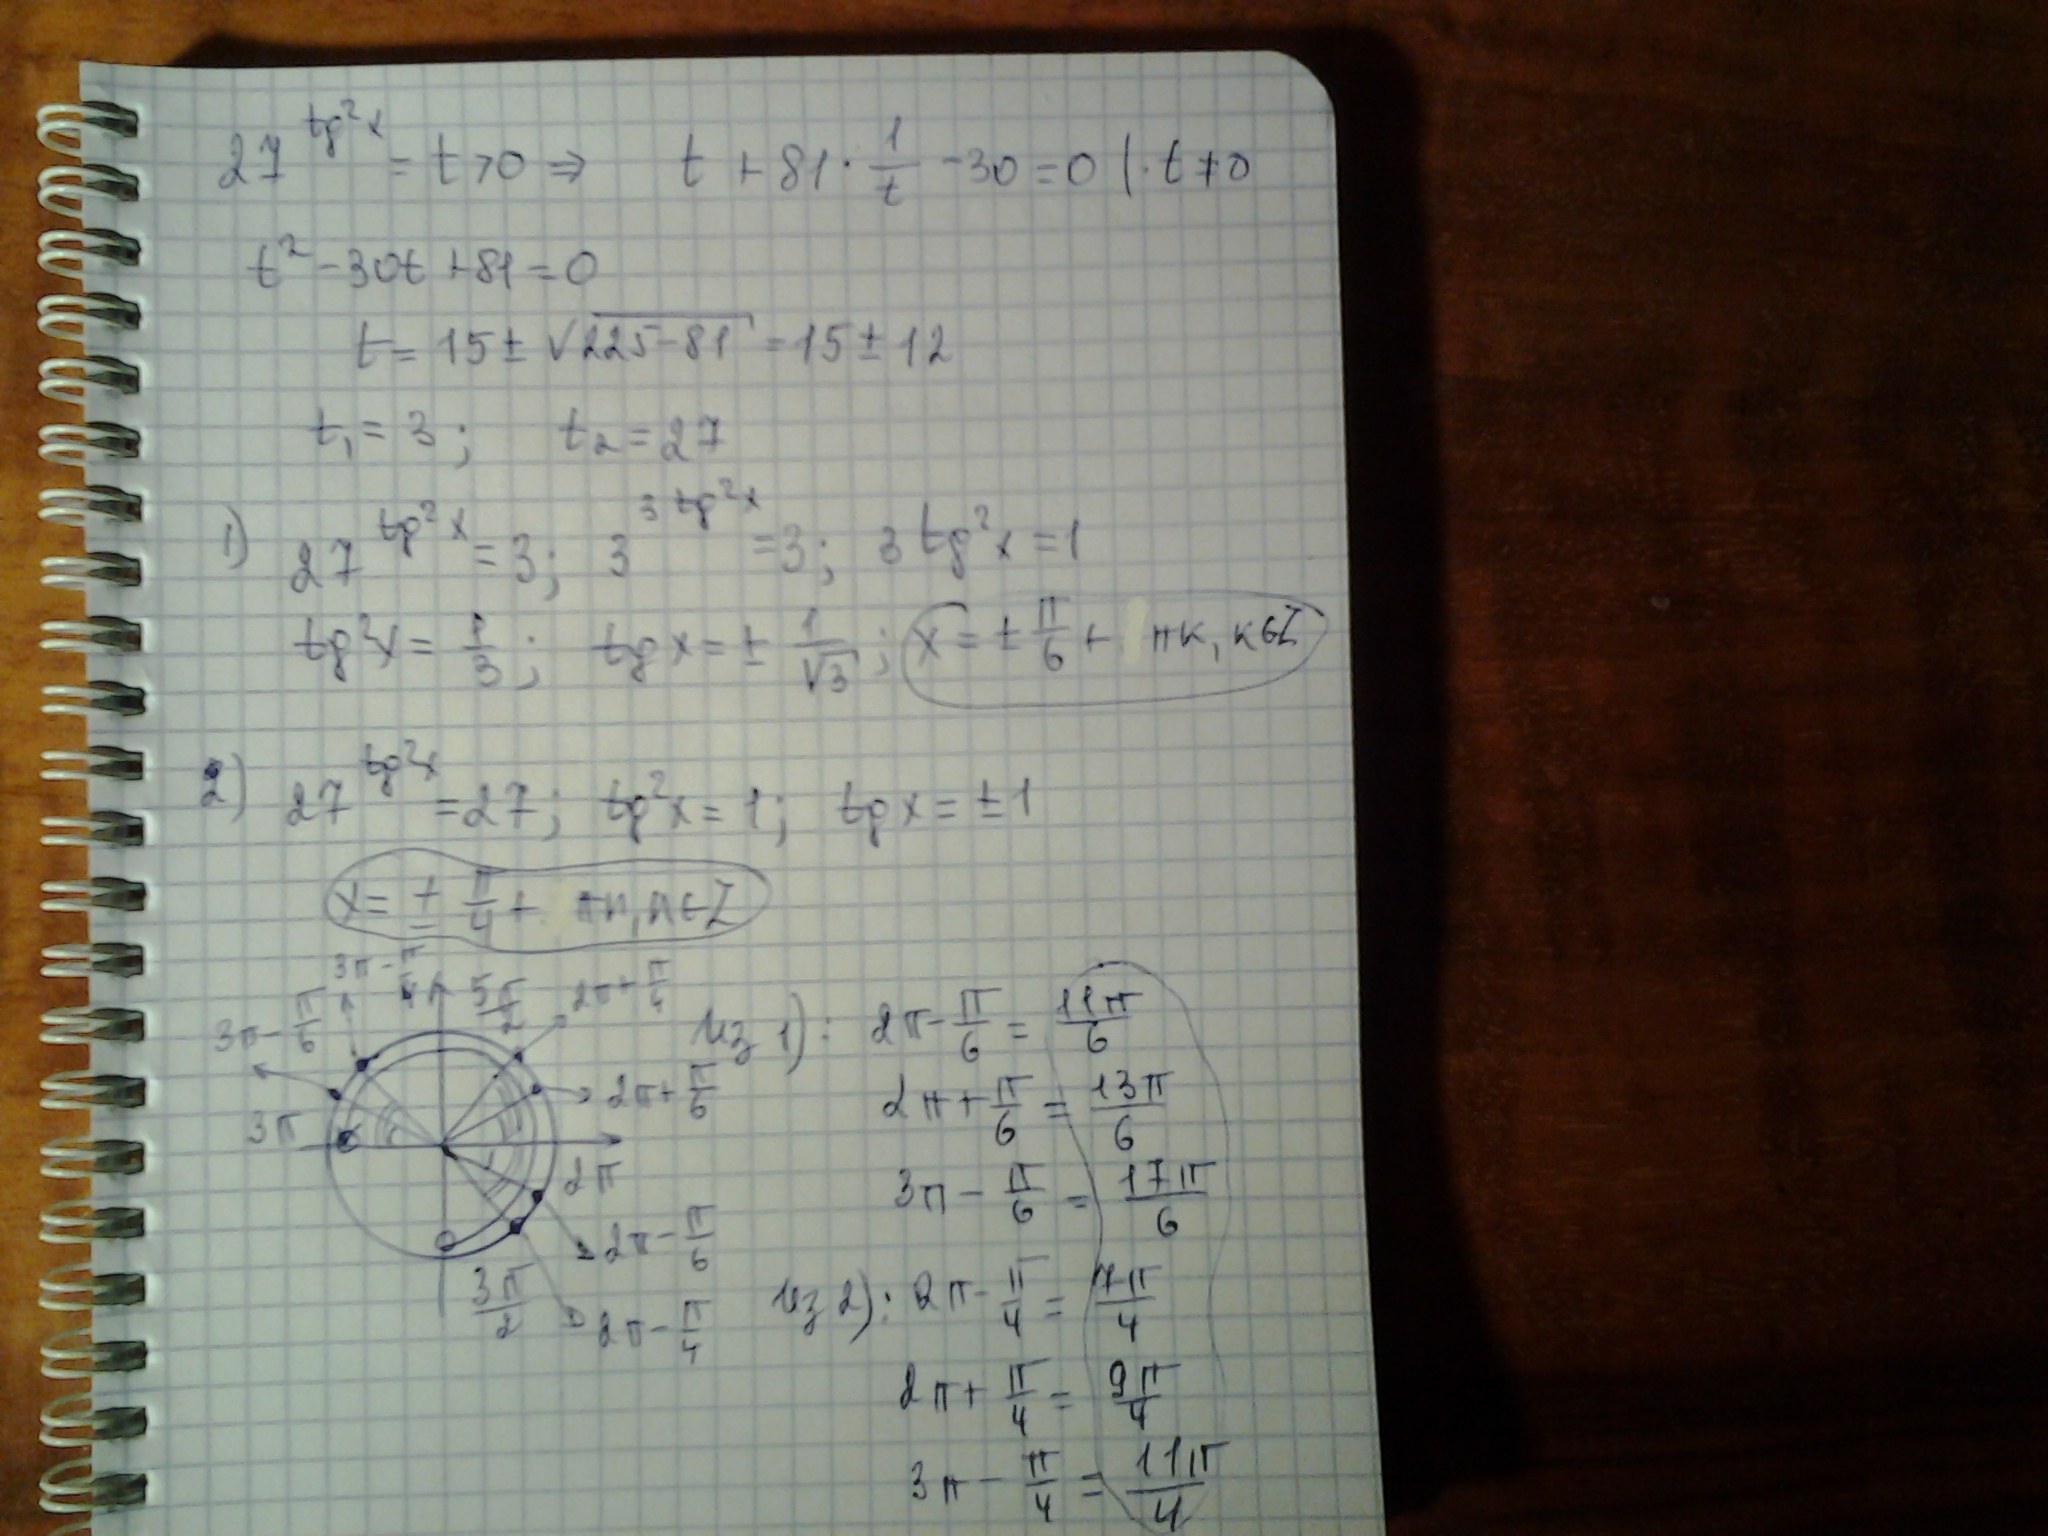 27^{tg²x} = t > 0 ⇒ t + 81 · 1/t − 30 = 0 | · t ≠ 0
t² − 30t + 81 = 0
t = 15 ± √(225 − 81) = 15 ± 12
t₁ = 3; t₂ = 27
1) 27^{tg²x} = 3; 3^{3tg²x} = 3; 3tg²x = 1
tg²x = 1/3; tg x = ± 1/√3; x = ± π/6 + πk, k∈Z
2) 27^{tg²x} = 27; tg²x = 1; tg x = ±1
x = ± π/4 + πn, n∈Z
3π − π/4
5π/2
2π + π/4
3π − π/6
2π + π/6
3π
2π
2π − π/6
3π/2
2π − π/4
Из 1): 2π − π/6 = 11π/6
2π + π/6 = 13π/6
3π − π/6 = 17π/6
Из 2): 2π − π/4 = 7π/4
2π + π/4 = 9π/4
3π − π/4 = 11π/4